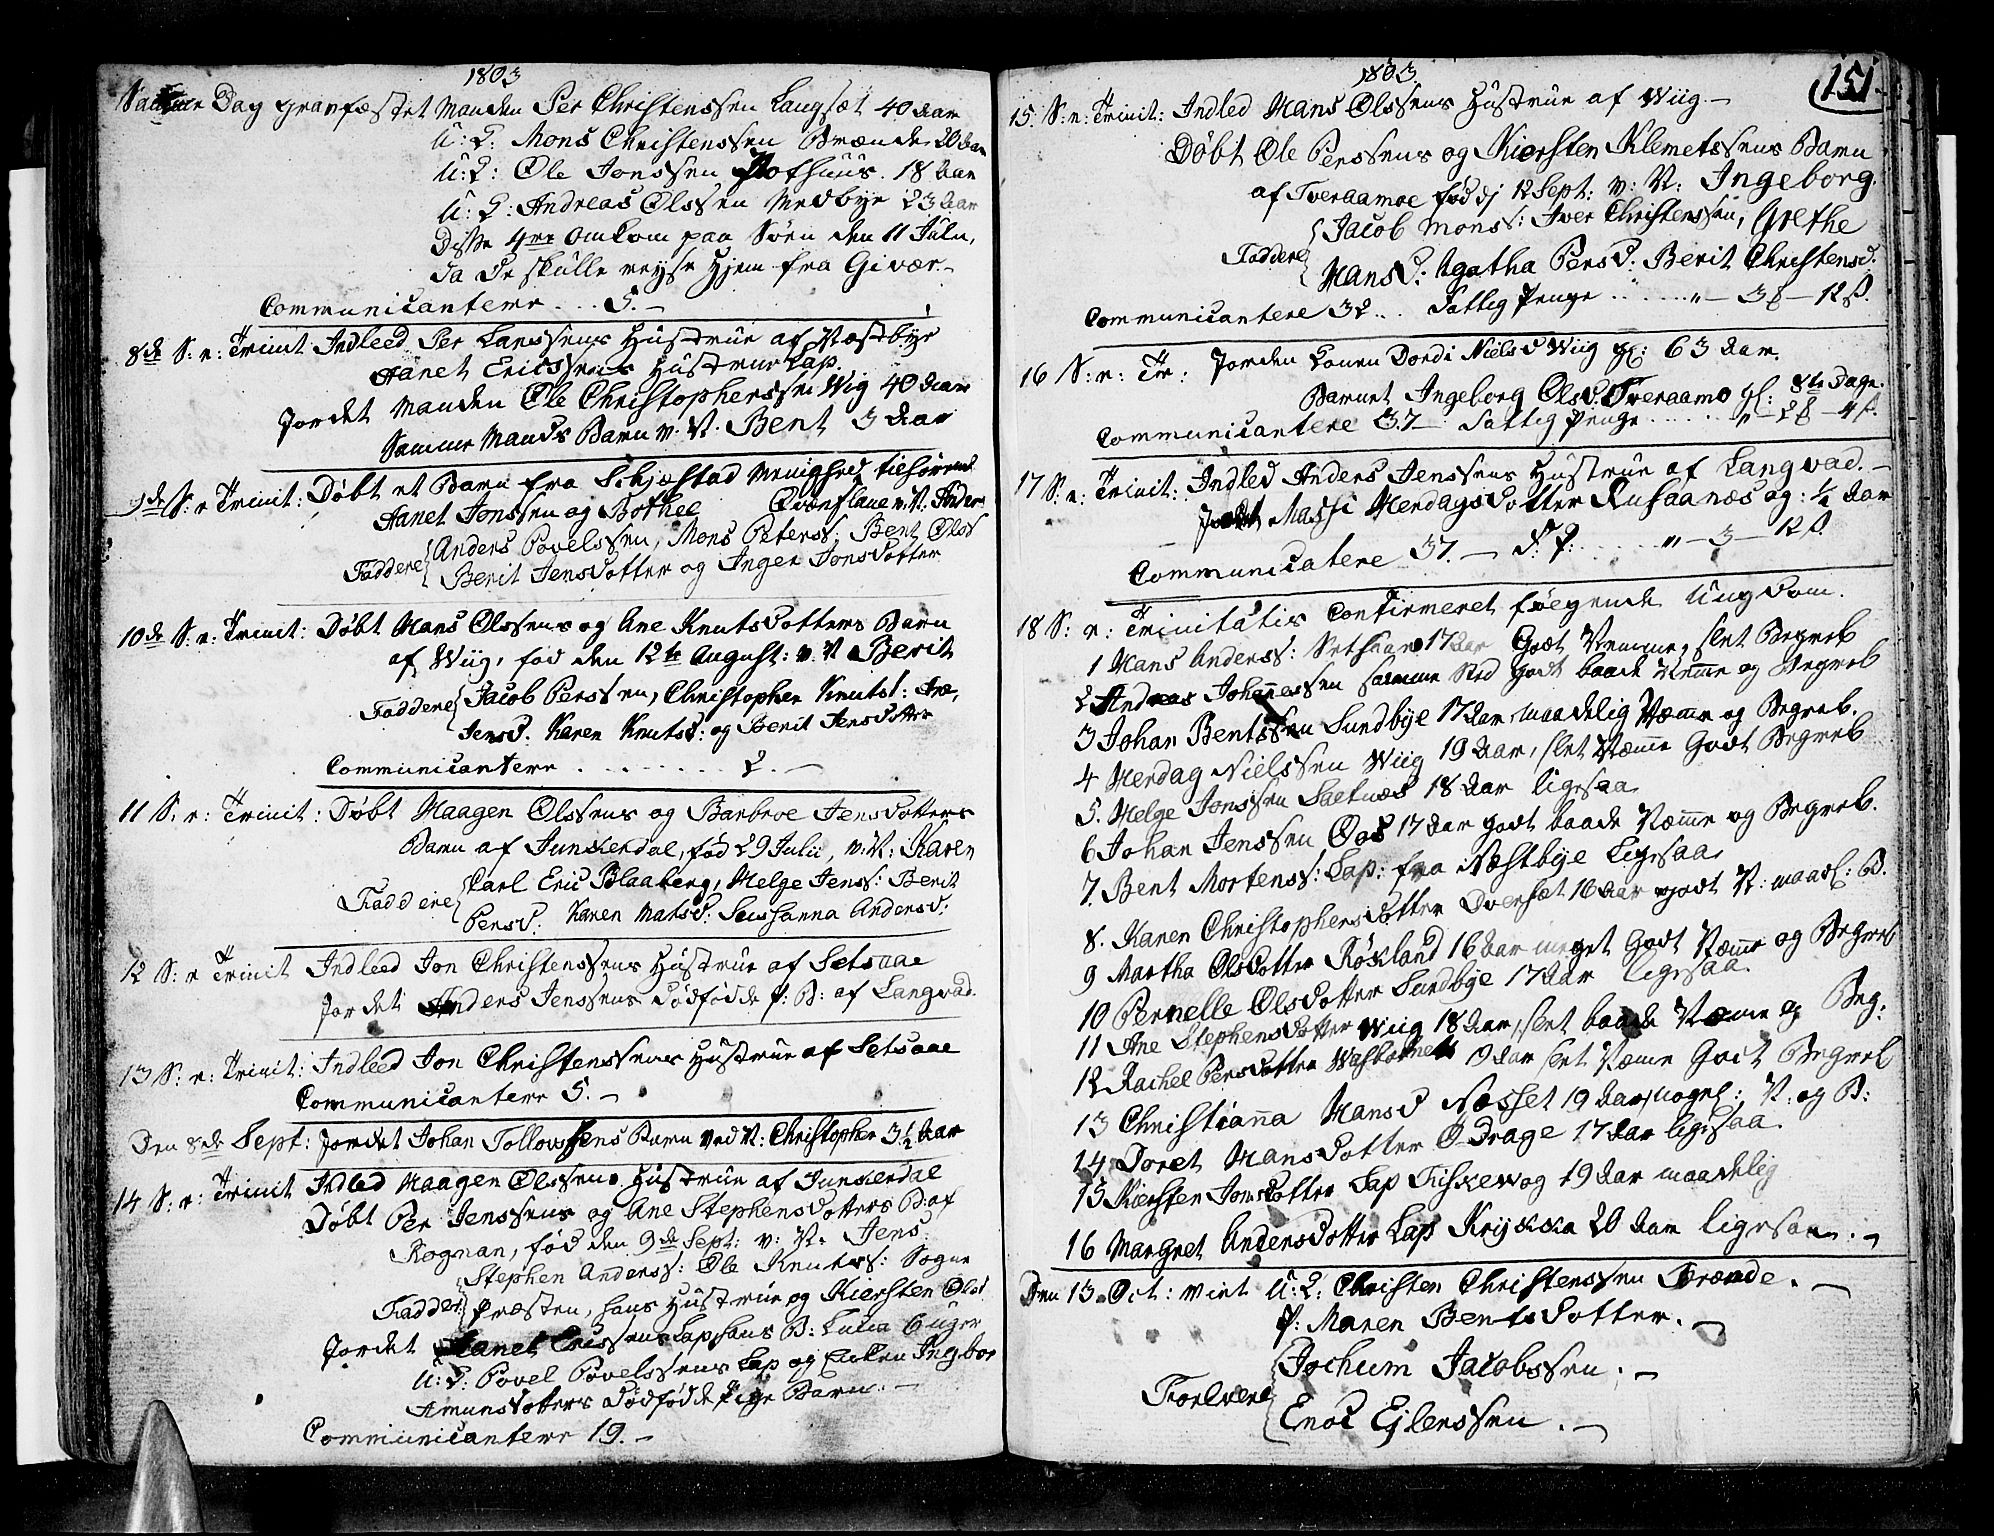 1803
Samme Dag gravfæstet Manden Per Christenssen Langsæt 40 Aar
U: K: Mons Christenssen Brænde 20 Aar
U: K: Ole Jonssen Pothuus. 18 Aar
U: K: Andreas Olssen Medbye 23 Aar
Disse 4re omkom paa Søen den 11 Julii,
da de skulle reyse Hjem fra Givær.-
Communicantere . . . 5.-
8de S: e: Trinit Indleed Per Larssens Hustrue af Næstbye
Hanet Ericssens Hustrue Lap.
Jordet Manden Ole Christopherssen Wiig 40 Aar
Samme Mands Barn v: N: Bent 3 Aar
9de S: e Trinit: Døbt et Barn fra Schjæstad Menighed tilhørende
Hanet Jonssen og Bothel v: N: Anders
Faddere Anders Povelssen, Mons Peterss: Bent Olss
Berit Jensdotter og Inger Jonsdotter
10de S: e: Trinit: Døbt Hans Olssens og Ane Knutsdotters Barn
af Wiig, fød den 12te August: v: N Berit
Faddere Jacob Perssen, Christopher Knuts:
Jensd: Karen Knutsd: og Berit Jensdotter
Communicantere . . . . . . . . 2.-
11 S: e: Trinit: Døbt Haagen Olssens og Barbroe Jensdotters
Barn af Junkerdal, fød 29 Julii, v: N: Karen
Faddere Carl Eric Blaaberg, Helge Jenss: Berit
Persd: Karen Matsd: Sussanna Andersd:
12 S: e Trinit Indleed Jon Christenssens Hustrue af Setsaae
Jordet Anders Jenssens Dødfødde P: B: af Langvad.
13 S: e: Trinit: Indleed Jon Christenssens Hustrue af Setsaae
Communicantere 5.-
Den 8de Sept: Jordet Johan Tollevssens Barn ved N: Christopher 3½ Aar
14 S: e: Trinit Indled Haagen Olssens Hustrue af Junkerdal
Døbt Per Jenssens og Ane Stephensdotters B: af
Rognan, fød den 9de Sept: v: N: Jens.
Stephen Anderss: Ole Knutss: Sogne
Fadder: præsten, hans Hustrue og Kiersten Olsd
Jordet Hanet Ericssens Lap hans B: Lucia 6 uger
U: K: Povel Povelssens Lap og Enken Ingbor
Amunsdotters Dødfødde Pige Barn.-
Communicantere 19.-
1803.
151
15. S: e: Trinit: Indled Hans Olssens Hustrue af Wiig.-
Døbt Ole Perssens og Kiersten Klemetssens Barn
af Tveraamoe fød dj 12 Sept: v: N: Ingeborg.
Faddere Jacob Mons: Iver Christenssen, Grethe
Hansd: Agatha Persd: Berit Christensd.
Communicantere 32... Fattig Penge . . . . . „ - 3 - 12 s.
16 S: e: Tr: Jorden Konen Dordi Nielsd Wiig gl: 63 Aar.
Barnet Ingeborg Olsd. Tveraamo gl: 8te Dage.
Communicantere 37 - Fattig Penge . . . . . „ - 2 - 4 s.
17 S: e: Trinit: Indled Anders Jenssens Hustrue af Langvad.-
Jordet Massi Merdagsdotter Rusaanæs og: ¼ Aar
Communicatere 37.- F: P: . . . . . „ - 3 - 12 s.
18 S: e: Trinitatis Confirmeret følgende Ungdom.
1 Hans Anderss: Setsaae 17 Aar Godt Nemme, slet Begreb
2 Andreas Johanessen samme Sted godt baade Nemme og Begreb
3 Johan Bentssen Sundbye 17 Aar maadelig Næmme og Begreb.
4 Merdag Nielssen Wiig 19 Aar, slet Næmme Godt Begreb
5. Helge Jonssen Saetnæs 18 Aar ligesaa
6 Johan Jenssen Qvæl 17 Aar godt baade Næmme og Begreb.
7. Bent Mortenss: Lap: fra Næstbye ligesaa
8. Karen Christophersdotter Dverset 16 Aar godt N: maadl: B.
9 Martha Olsdotter Røkland 16 Aar meget Godt Næmme og Begreb
10 Pernelle Olsdotter Sundbye 17 Aar ligesaa.
11 Ane Stephensdotter Wiig 18 Aar, slet baade Næmme og Beg:
12 Rachel Persdotter Aar slet Næmme Godt Begreb
13 Christianna Hansd Næsset 19 Aar, nogel: N: og B:
14 Doret Hansdotter Drage 17 Aar ligesaa.
15 Kiersten Jonsdotter Lap Fiskevog 19 Aar maadelig
16 Margret Andersdotter Lap Krykkia 20 Aar ligesaa.-
Den 13 Oct: viet U: K: Christen Christenssen Brænde. -
P: Maren Bentsdotter. -
Forlovere Jochum Jacobssen. -
Enoc Ejlerssen. -